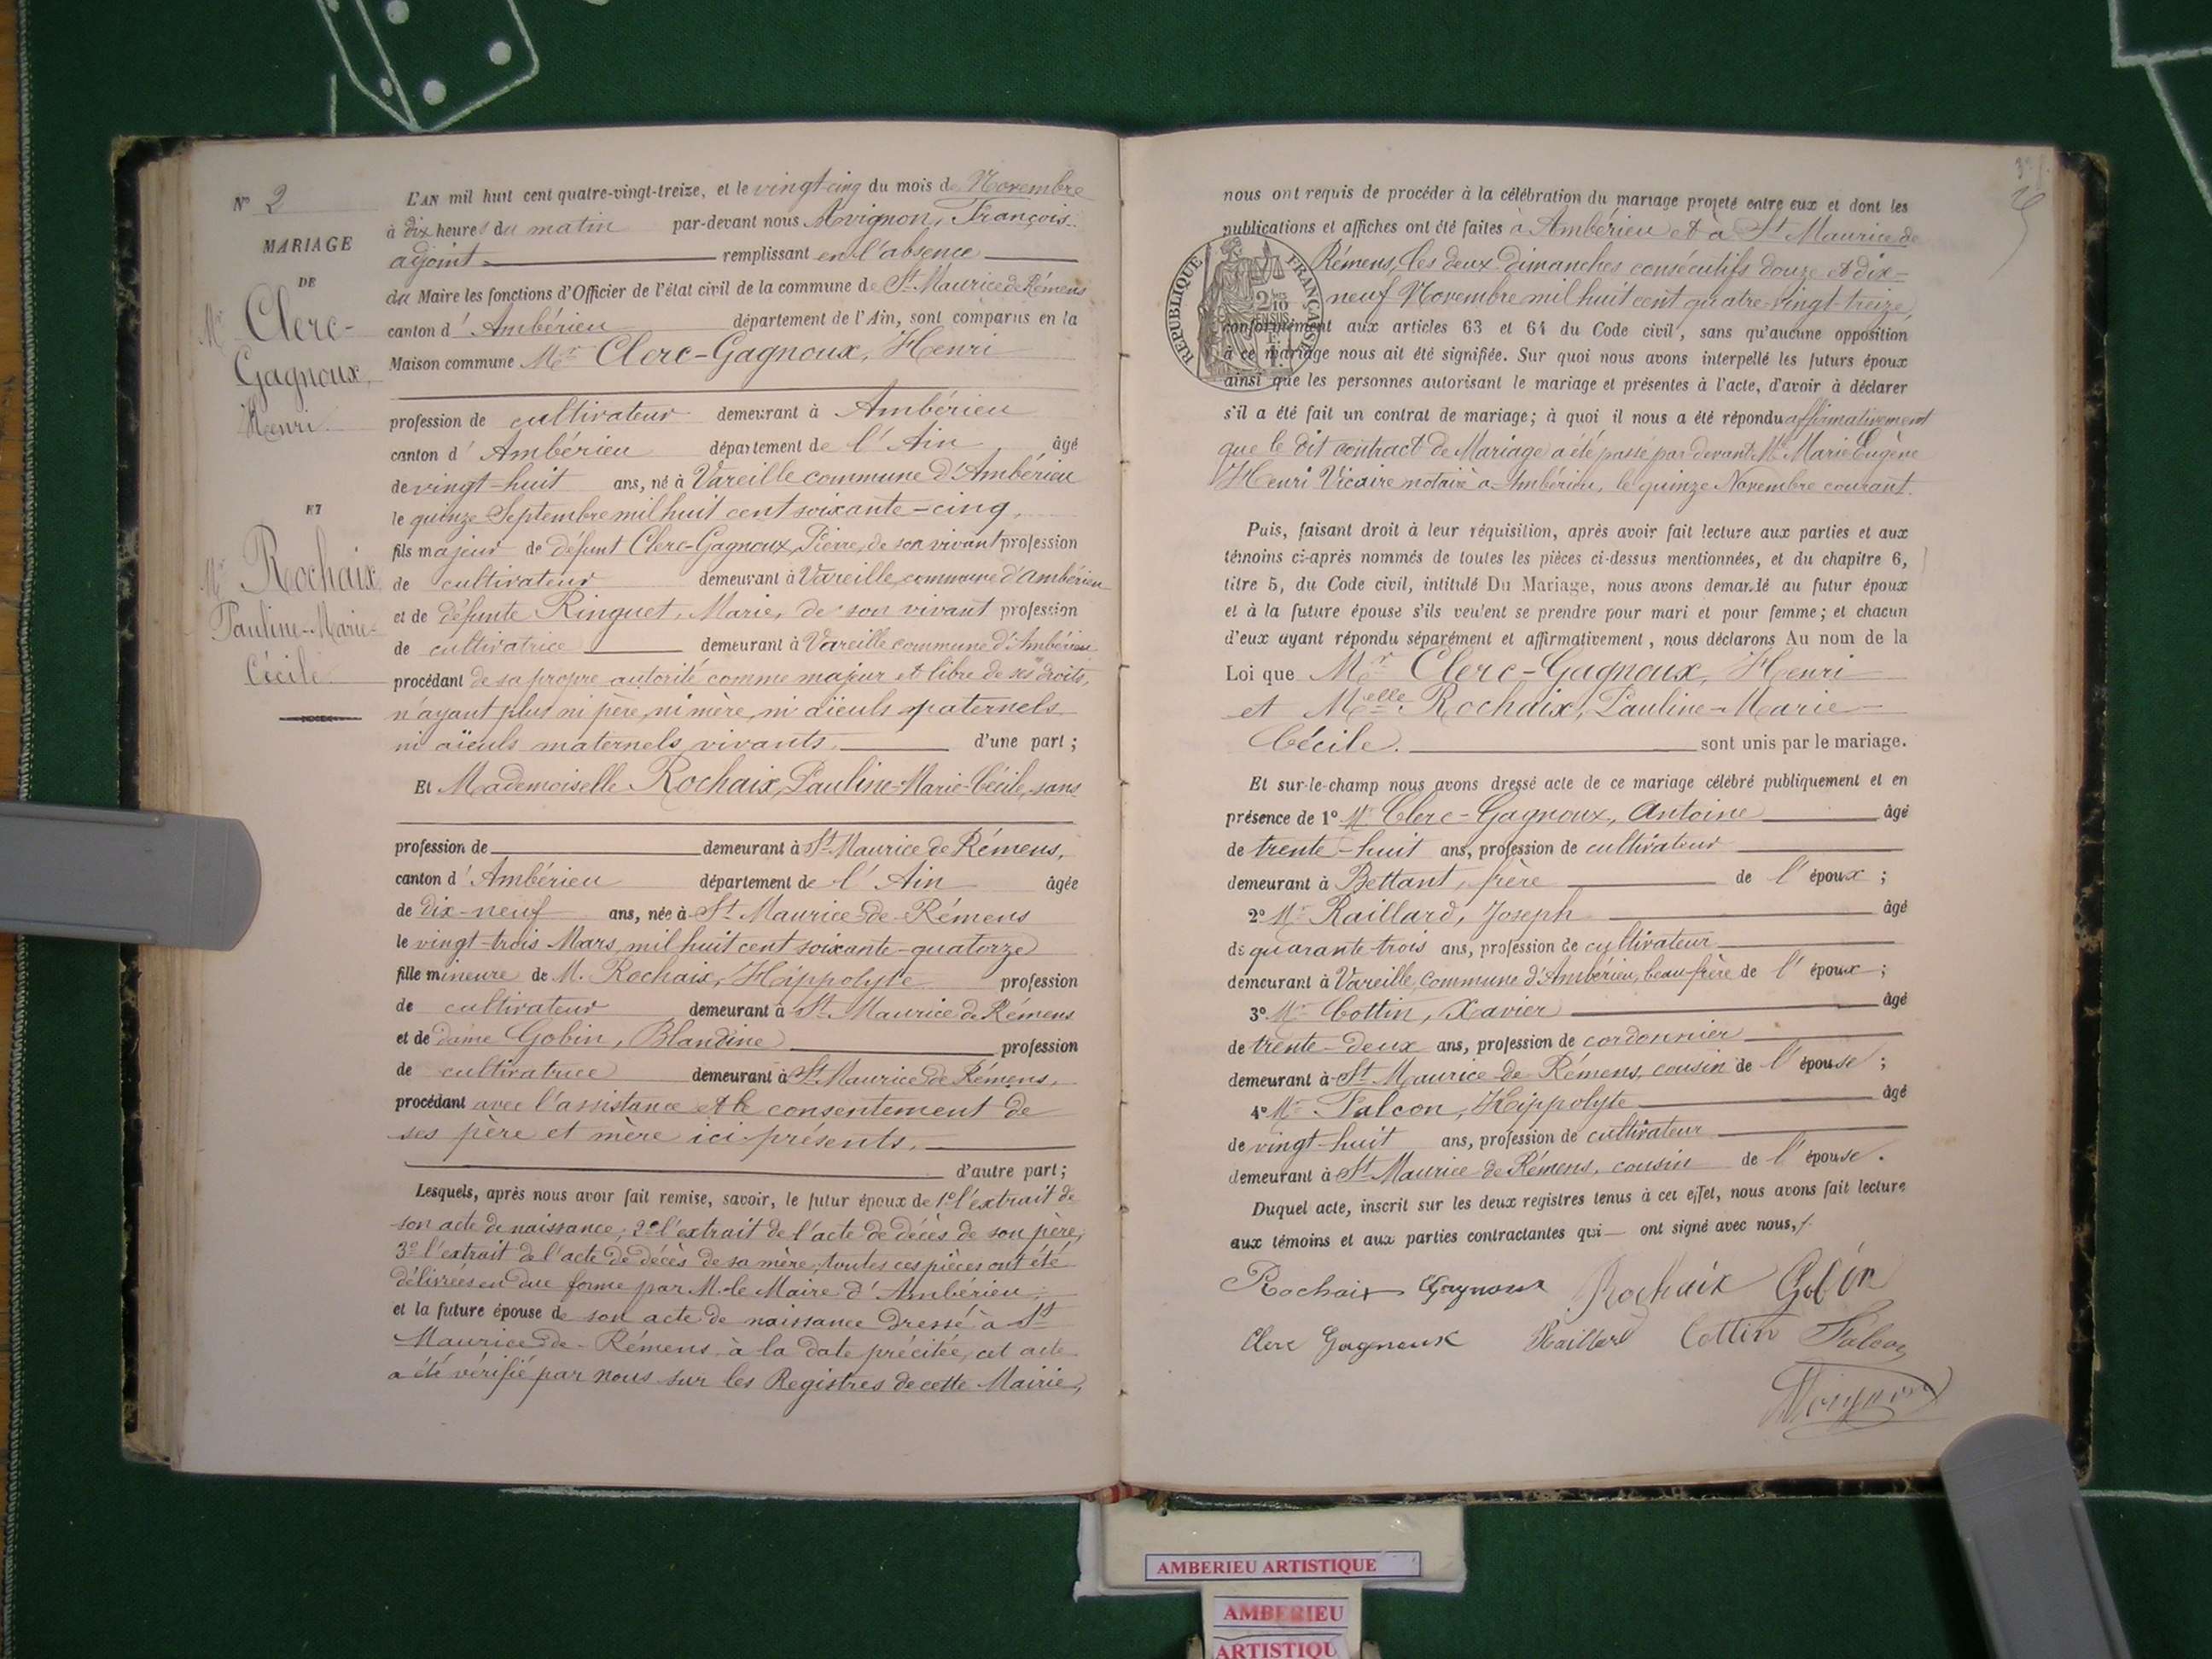 N° 2
MARIAGE
DE
Mr Clerc-
Gagnoux,
Henri.
ET
Rochaix,
Pauline-Marie-
Cécile.
L'AN mil huit cent quatre-vingt-treize, et le vingt-cinq du mois de Novembre
à dix heures du matin par-devant nous Avignon, François
adjoint remplissant en l'absence
du Maire les fonctions d'Officier de l'état civil de la commune de St Maurice de Rémens
canton d'Ambérieu département de l'Ain, sont comparus en la
Maison commune Mr Clerc-Gagnoux, Henri
profession de cultivateur demeurant à Ambérieu
canton d'Ambérieu département de l'Ain âgé
de vingt-huit ans, né à Vareille commune d'Ambérieu
le quinze Septembre mil huit cent soixante-cinq,
fils majeur de défunt Clerc-Gagnoux, Pierre, de son vivant profession
de cultivateur demeurant à Vareille, commune d'Ambérieu
et de défunte Ringuet, Marie, de son vivant profession
de cultivatrice demeurant à Vareille commune d'Ambérieu
procédant de sa propre autorité comme majeur et libre de ses droits,
n'ayant plus ni père, ni mère, ni aïeuls paternels
ni aïeuls maternels vivants. d'une part ;
Et Mademoiselle Rochaix, Pauline-Marie-Cécile, sans
profession de demeurant à St Maurice de Rémens,
canton d'Ambérieu département de l'Ain âgée
de dix-neuf ans, née à St Maurice-de-Rémens
le vingt-trois Mars mil huit cent soixante-quatorze
fille mineure de M. Rochaix, Hippolyte profession
de cultivateur demeurant à St Maurice de Rémens
et de dame Gobin, Blandine profession
de cultivatrice demeurant à St Maurice de Rémens,
procédant avec l'assistance et le consentement de
ses père et mère ici présents.
d'autre part ;
Lesquels, après nous avoir fait remise, savoir, le futur époux de 1° l'extrait de
son acte de naissance ; 2° l'extrait de l'acte de décès de son père,
3° l'extrait de l'acte de décès de sa mère, toutes ces pièces ont été
délivrées en due forme par M. le Maire d'Ambérieu ;
et la future épouse de son acte de naissance dressé à St
Maurice-de-Rémens à la date précitée, cet acte
a été vérifié par nous sur les Registres de cette Mairie,
nous ont requis de procéder à la célébration du mariage projeté entre eux et dont les
publications et affiches ont été faites à Ambérieu et à St Maurice de
Rémens, les deux dimanches consécutifs douze et dix-
neuf Novembre mil huit cent quatre-vingt-treize,
RÉPUBLIQUE FRANÇAISE
conformément aux articles 63 et 64 du Code civil, sans qu'aucune opposition
à ce mariage nous ait été signifiée. Sur quoi nous avons interpellé les futurs époux
ainsi que les personnes autorisant le mariage et présentes à l'acte, d'avoir à déclarer
s'il a été fait un contrat de mariage ; à quoi il nous a été répondu affirmativement
que le dit contract de Mariage a été passé par devant Me Marie Eugène
Henri Vicaire notaire à Ambérieu, le quinze Novembre courant.
Puis, faisant droit à leur réquisition, après avoir fait lecture aux parties et aux
témoins ci-après nommés de toutes les pièces ci-dessus mentionnées, et du chapitre 6,
titre 5, du Code civil, intitulé Du Mariage, nous avons demandé au futur époux
et à la future épouse s'ils veulent se prendre pour mari et pour femme ; et chacun
d'eux ayant répondu séparément et affirmativement, nous déclarons Au nom de la
Loi que Mr Clerc-Gagnoux, Henri
et Melle Rochaix, Pauline-Marie-
Cécile. sont unis par le mariage.
Et sur-le-champ nous avons dressé acte de ce mariage célébré publiquement et en
présence de 1° Mr Clerc-Gagnoux, Antoine âgé
de trente-huit ans, profession de cultivateur
demeurant à Bettant, frère de l'époux ;
2° Mr Raillard, Joseph âgé
de quarante-trois ans, profession de cultivateur
demeurant à Vareille, commune d'Ambérieu, beau frère de l'époux ;
3° Mr Cottin, Xavier âgé
de trente-deux ans, profession de cordonnier
demeurant à St Maurice-de Rémens, cousin de l'épouse ;
4° Mr Falcon, Hippolyte âgé
de vingt-huit ans, profession de cultivateur
demeurant à St Maurice-de Rémens, cousin de l'épouse.
Duquel acte, inscrit sur les deux registres tenus à cet effet, nous avons fait lecture
aux témoins et aux parties contractantes qui ont signé avec nous,
Rochaix Gagnoux Rochaix Gobin
Clerc Gagnoux Raillard Cottin Falcon
AMBERIEU ARTISTIQUE
AMBERIEU
ARTISTIQU